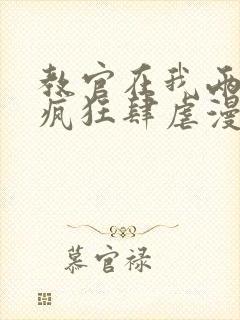 教官在我两
疯狂肆虐漫
慕官禄